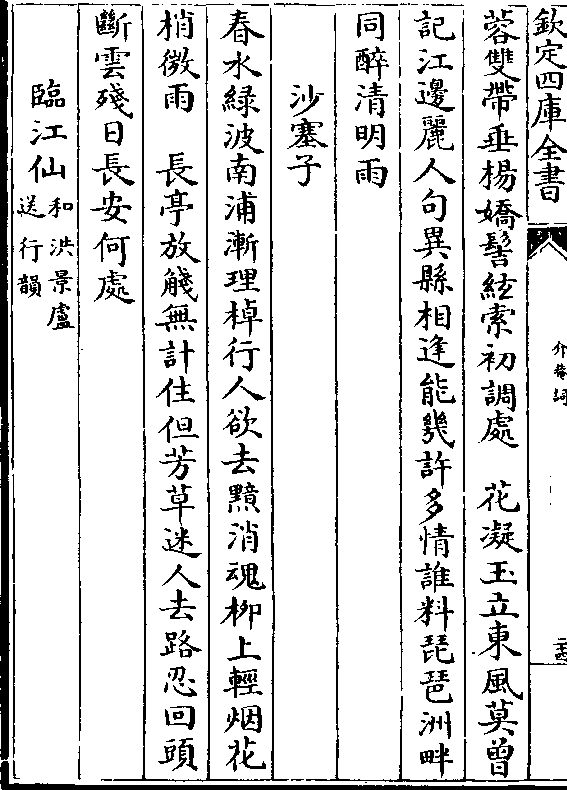 欽定四庫全書
介菴詞
蓉雙帶垂楊嬌髻絃索初調處　花凝玉立東風莫曾
記江邊麗人句異縣相逢能幾許多情誰料琵琶洲畔
同醉清明雨
沙塞子
春水綠波南浦漸理棹行人欲去黯消魂柳上輕烟花
梢微雨　長亭放觴無計住但芳草迷人去路忍回頭
斷雲殘日長安何處
臨江仙和洪景盧
送行韻